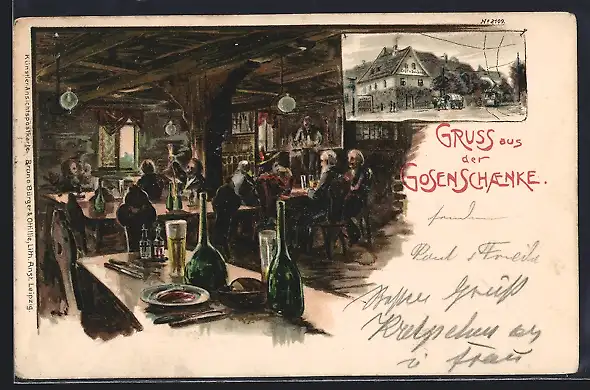 No 2109.
GRUSS aus
der
GOSENSCHÆNKE.
Paul & Frieda
Gruß
Kretzschen
u Frau
Künstler-Ansichtspostkarte. Bruno Bürger & Ottillie, Lith. Anst. Leipzig.